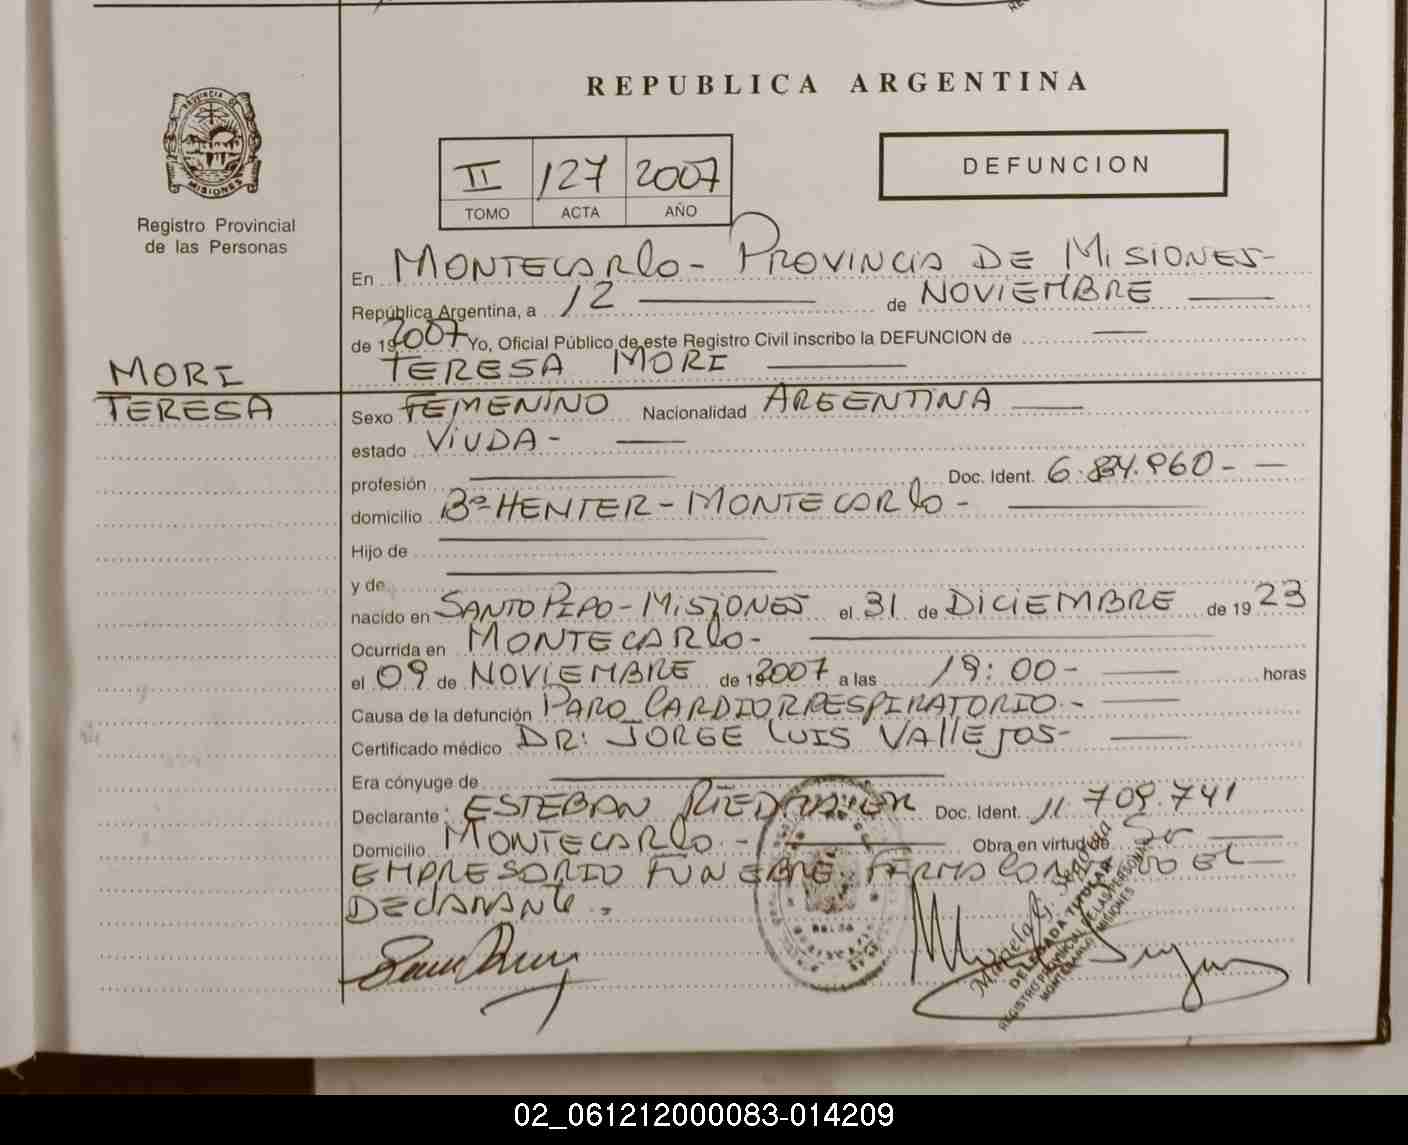 REPUBLICA ARGENTINA
PROVINCIA DE
MISIONES
Registro Provincial
de las Personas
DEFUNCION
II 127 2007
TOMO ACTA AÑO
En MONTECARlo - PROVINCIA DE MISIONES-
República Argentina, a 12 de NOVIEMBRE
de 19 2007 Yo, Oficial Público de este Registro Civil inscribo la DEFUNCION de
TERESA MORI
MORI
TERESA
Sexo FEMENINO Nacionalidad ARGENTINA
estado VIUDA-
profesión Doc. Ident. 960-
domicilio Bº HENTER - MONTECARlo -
Hijo de
y de
nacido en SANTO PIPO - MISIONES el 31 de DICIEMBRE de 19 23
Ocurrida en MONTECARlo-
el 09 de NOVIEMBRE de 19 2007 a las 19:00- horas
Causa de la defunción PARO CARDIORRESPIRATORIO-
Certificado médico DR: JORGE LUIS VAllEJOS-
Era cónyuge de
Declarante ESTEBAN Doc. Ident. 11.709.741
Domicilio MONTECARlo - Obra en virtud de Ser
EMPRESARIO FUNEBRE FIRMA EL
DECLARANTE.
DELEGADA TITULAR
REGISTRO PROVINCIAL DE LAS PERSONAS
MONTECARLO MISIONES
02_061212000083-014209